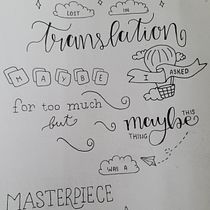 LOST IN
translation
MAYBE I ASKED
for too much
but maybe THIS
THING
WAS A
MASTERPIECE